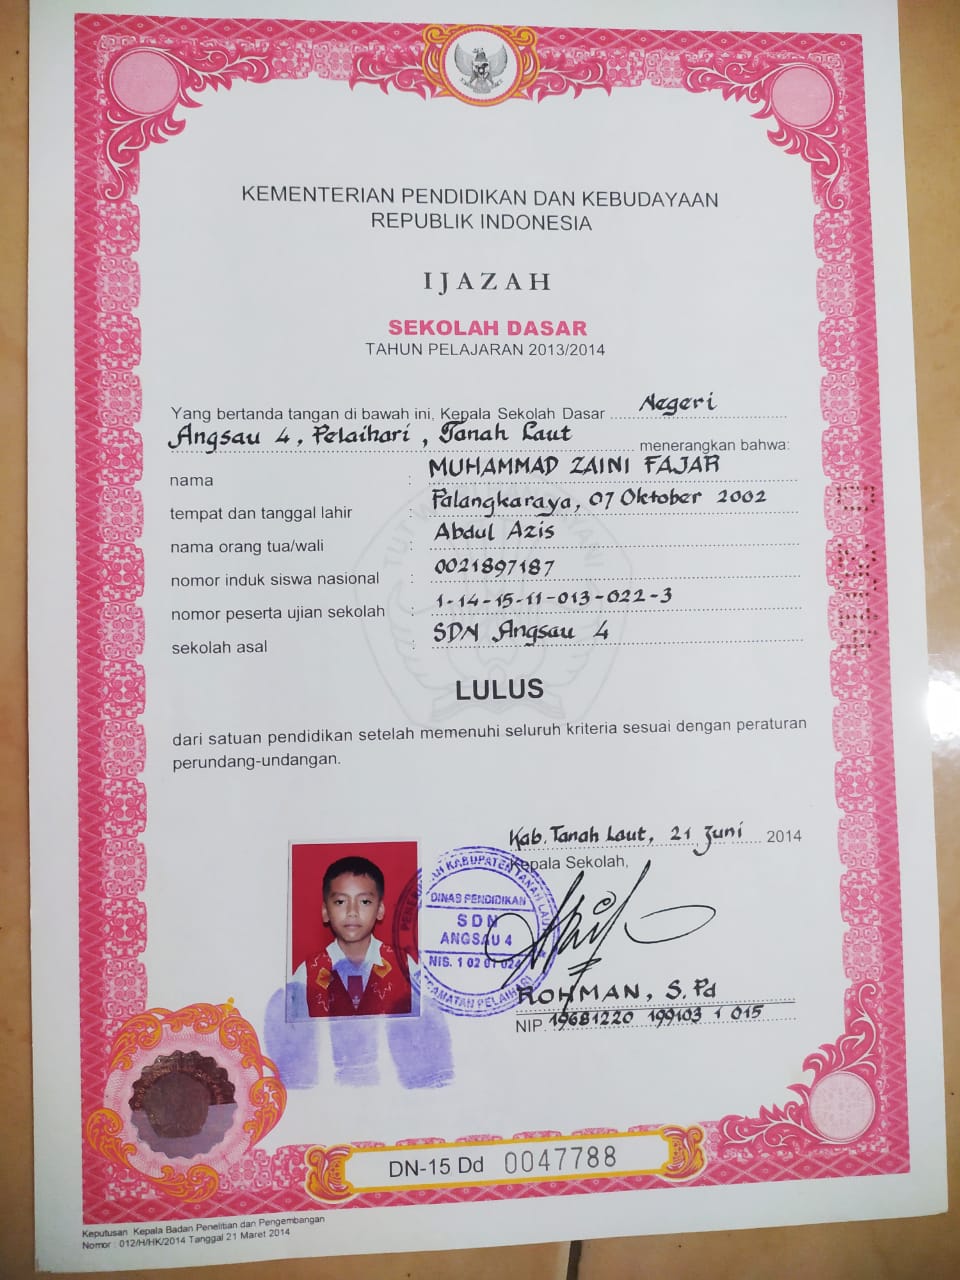 KEMENTERIAN PENDIDIKAN DAN KEBUDAYAAN
REPUBLIK INDONESIA
IJAZAH
SEKOLAH DASAR
TAHUN PELAJARAN 2013/2014
Yang bertanda tangan di bawah ini, Kepala Sekolah Dasar Negeri
Angsau 4, Pelaihari, Tanah Laut menerangkan bahwa:
nama : MUHAMMAD ZAINI FAJAR
tempat dan tanggal lahir : Palangkaraya, 07 Oktober 2002
nama orang tua/wali : Abdul Azis
nomor induk siswa nasional : 0021897187
nomor peserta ujian sekolah : 1-14-15-11-013-022-3
sekolah asal : SDN Angsau 4
LULUS
dari satuan pendidikan setelah memenuhi seluruh kriteria sesuai dengan peraturan
perundang-undangan.
Kab. Tanah Laut, 21 Juni 2014
Kepala Sekolah,
KABUPATEN TANAH LAUT
DINAS PENDIDIKAN
SDN
ANGSAU 4
NIS. 1 02 01 024
KECAMATAN PELAIHARI
ROHMAN, S.Pd
NIP. 19681220 199103 1 015
DN-15 Dd 0047788
Keputusan Kepala Badan Penelitian dan Pengembangan
Nomor : 012/H/HK/2014 Tanggal 21 Maret 2014